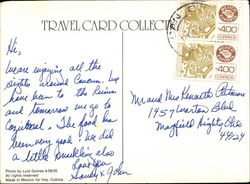 TRAVEL CARD COLLECTION
Hi,
We are enjoying all the
sights around Cancun. We
have been to the Ruins
and tomorrow we go to
Cozumel. The food has
been very good. We did
a little snorkling also
Love you
Sandy & John
Photo by Luis Gomez
All rights reserved
Made in Mexico for Imp. Cubica
MEXICO
400
CORREOS
MEXICO
400
CORREOS
Mr and Mrs Kenneth Peterson
1457
Mayfield Heights Ohio
44124